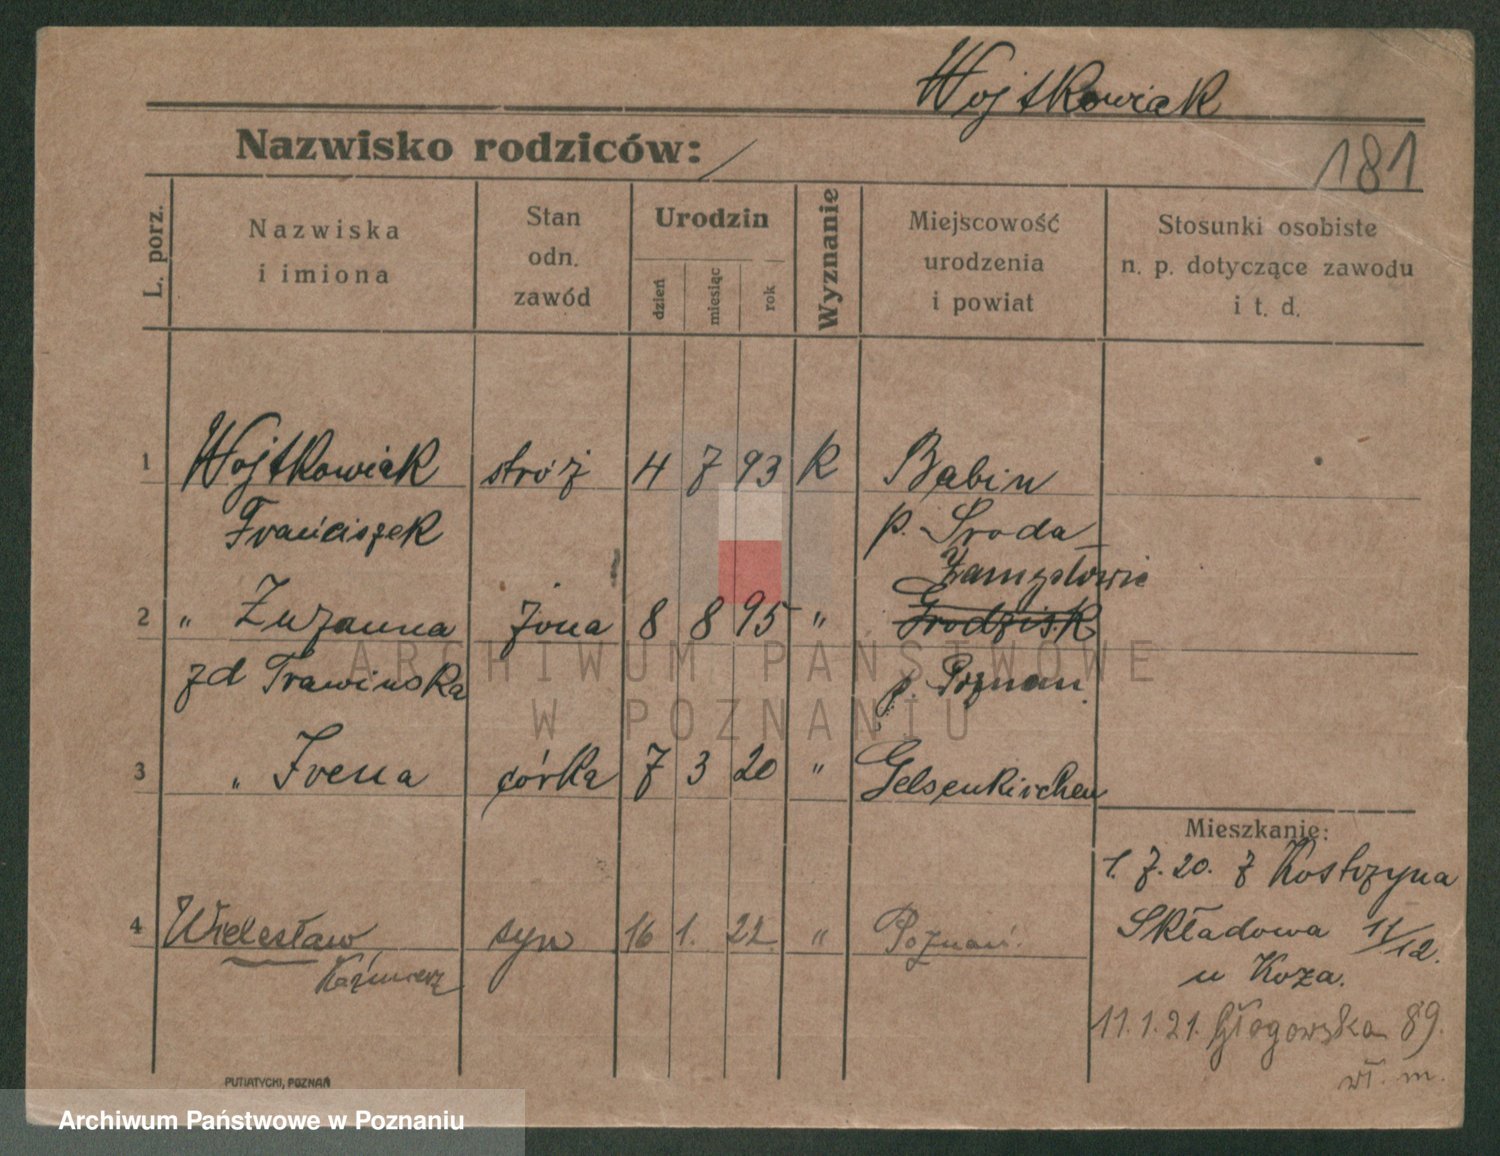 Wojtkowiak
Nazwisko rodziców: /
181
L. porz.
Nazwiska
i imiona
Stan
odn.
zawód
Urodzin
dzień
miesiąc
rok
Wyznanie
Miejscowość
urodzenia
i powiat
Stosunki osobiste
n. p. dotyczące zawodu
i t. d.
1 Wojtkowiak stróż 4 7 93 K Babin
Franciszek p. Sroda
Zamysłowie
2 " Zuzanna żona 8 8 95 " Grodzisk
zd Trawinska p. Poznan.
3 " Irena córka 7 3 20 " Gelsenkirchen
Mieszkanie:
1. 7. 20. z Kostrzyna
4 Wielesław syn 16 1. 22. " Poznań.
Kaźmierz
Składowa 11/12.
u Koza.
11. 1. 21. Głogowska 89.
wł. m.
PUTIATYCKI, POZNAŃ
ARCHIWUM PAŃSTWOWE
W POZNANIU
Archiwum Państwowe w Poznaniu